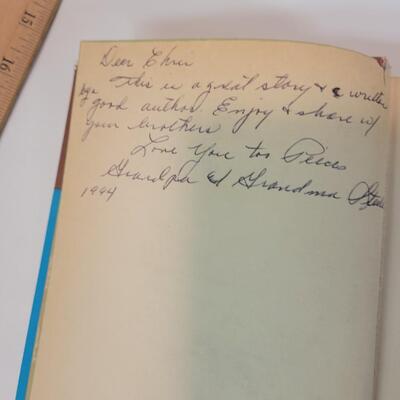 Dear Chris
This is a great story & written
by a good author. Enjoy & share w/
your brothers
Love You too Pieces
Grandpa & Grandma
1994
15
16